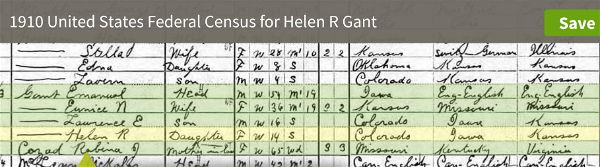 1910 United States Federal Census for Helen R Gant Save
Stella Wife F W 28 M 10 2 2 Kansas Swit German Illinois
Edna Daughter F W 8 S Oklahoma Kansas Kansas
Lavern Son M W 4 S Colorado Kansas Kansas
3 Gant Emanuel Head M W 54 M 19 Iowa Eng-English Eng-English
Eunice N Wife F W 36 M 19 2 2 Kansas Missouri Missouri
Lawrence E Son M W 16 S Colorado Iowa Kansas
Helen R Daughter F W 14 S Colorado Iowa Kansas
Cozad Robina J Mother in law F W 65 Wd 3 3 Missouri Kentucky Virginia
Head M Can. English Can. English